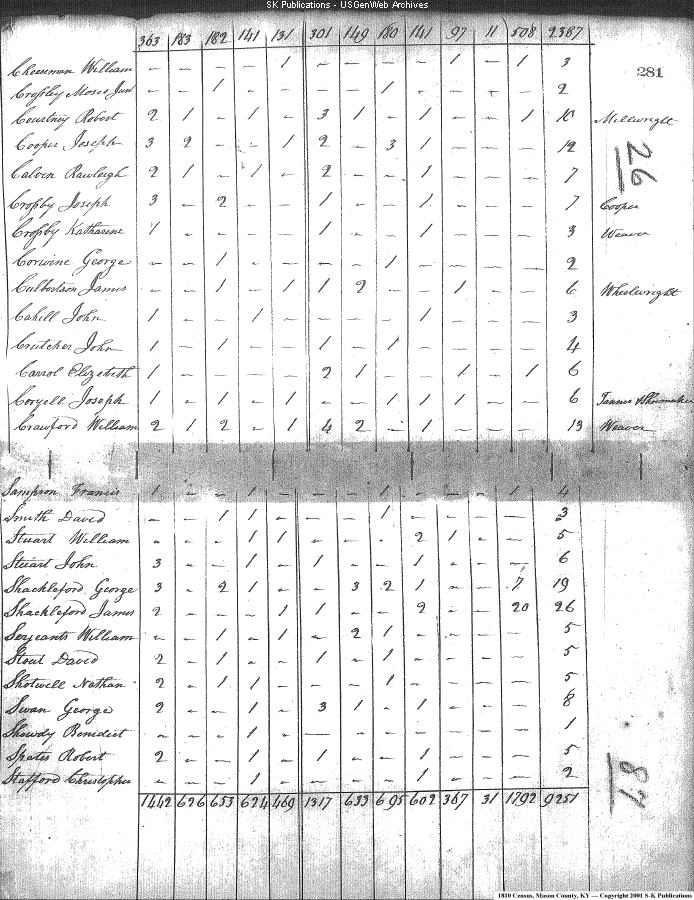 SK Publications - USGenWeb Archives
363 183 182 141 131 301 149 180 141 97 11 508 2387
281
Cheeseman William – – – – 1 – – – – 1 – 1 3
Croſsley Moses Junr – – 1 – – – – 1 – – – – 2
Courtney Robert 2 1 – 1 – 3 1 – 1 – – 1 10 Millwright
Cooper Joseph 3 2 – – 1 2 – 3 1 – – – 12
26
Calvin Rawleigh 2 1 – 1 – 2 – – 1 – – – 7
Croſsby Joseph 3 – 2 – – 1 – – 1 – – – 7 Cooper
Croſsby Katharine 1 – – – – 1 – – 1 – – – 3 Weaver
Corwine George – – 1 – – – – 1 – – – – 2
Culbertson James – – 1 – 1 1 2 – – 1 – – 6 Wheelwright
Cahill John 1 – – 1 – – – – 1 – – – 3
Crutcher John 1 – 1 – – 1 – 1 – – – – 4
Carrol Elizebeth 1 – – – – 2 1 – – 1 – 1 6
Coryell Joseph 1 – 1 – 1 – – 1 1 1 – – 6 Tanner & Shoemaker
Crawford William 2 1 2 – 1 4 2 – 1 – – – 13 Weaver
Sampson Francis 1 – – 1 – – – 1 – – – 1 4
Smith David – – 1 1 – – – 1 – – – – 3
Stuart William – – – 1 1 – – – 2 1 – – 5
Stuart John 3 – – 1 – 1 – – 1 – – – 6
Shackleford George 3 – 2 1 – – 3 2 1 – – 7 19
Shackleford James 2 – – – 1 1 – – 2 – – 20 26
Serjeants William – – 1 – 1 – 2 1 – – – – 5
Stout David 2 – 1 – – 1 – 1 – – – – 5
Shotwell Nathan 2 – 1 1 – – – 1 – – – – 5
Swan George 2 – – 1 – 3 1 – 1 – – – 8
Showdy Benedict – – – 1 – – – – – – – – 1
Spates Robert 2 – – 1 – 1 – – 1 – – – 5
Stafford Christopher – – – 1 – – – – 1 – – – 2
87
1442 626 653 624 469 1317 633 695 602 367 31 1792 9251
1810 Census, Mason County, KY — Copyright 2001 S-K Publications